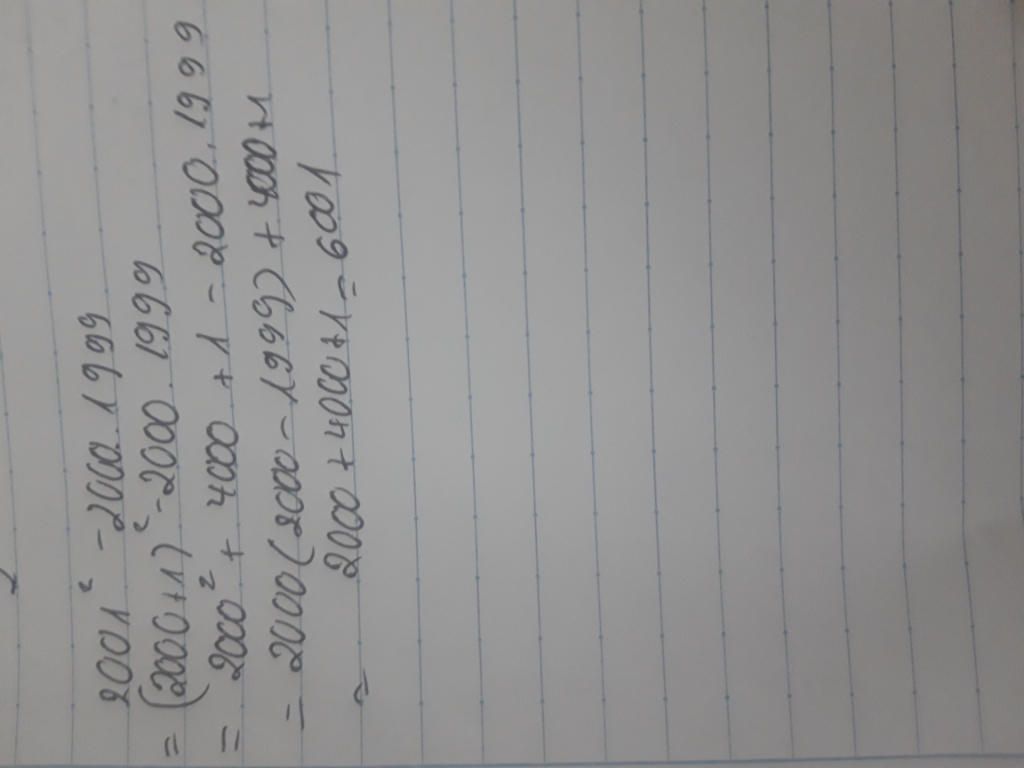 2001² - 2000.1999
= (2000+1)² - 2000.1999
= 2000² + 4000 + 1 - 2000.1999
= 2000(2000 - 1999) + 4000 + 1
= 2000 + 4000 + 1 = 6001